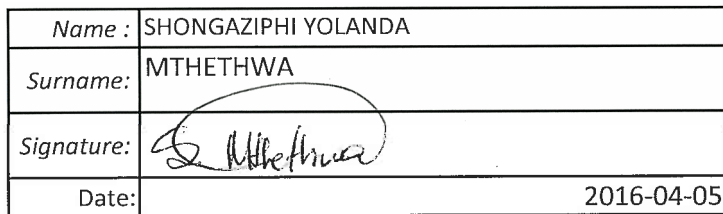 Name : SHONGAZIPHI YOLANDA
Surname: MTHETHWA
Signature: Mthethwa
Date: 2016-04-05